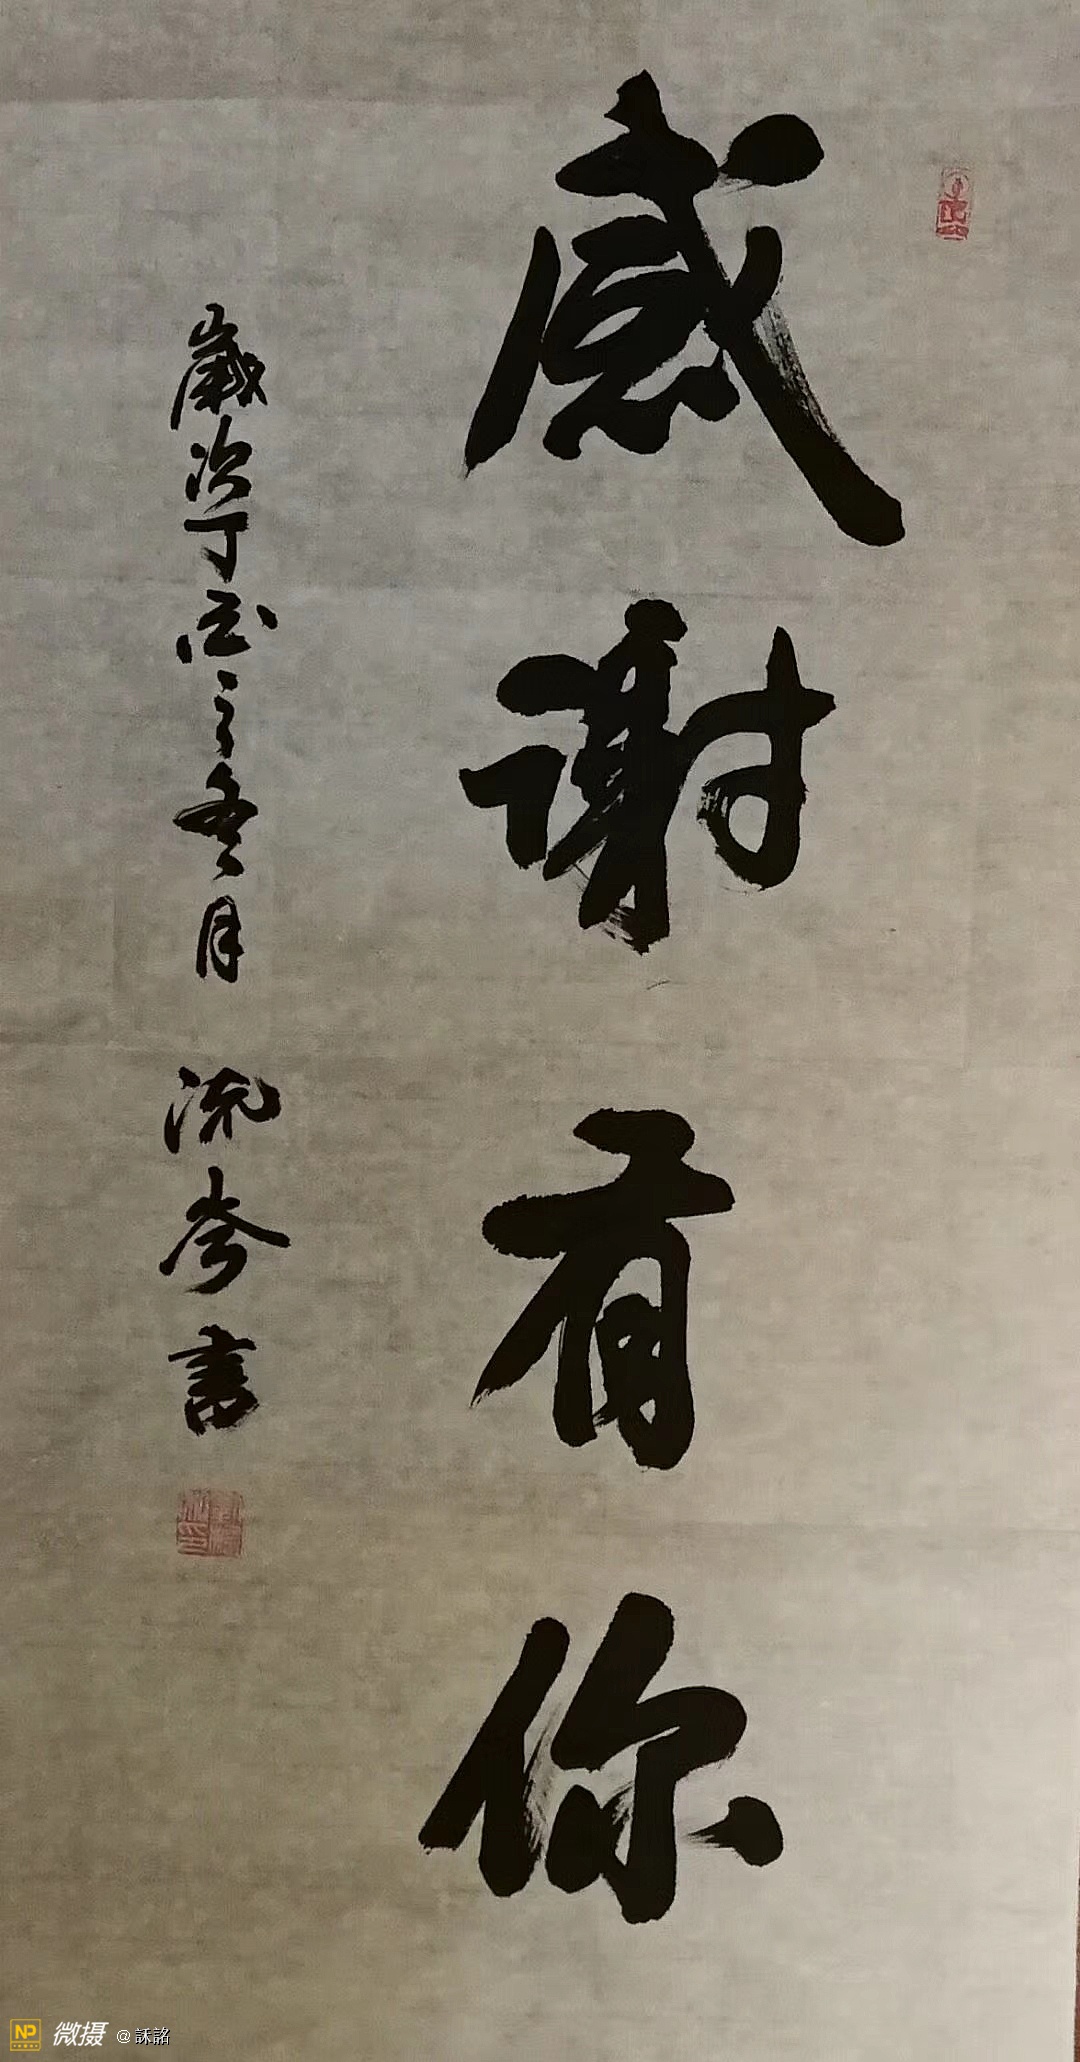 感谢有你
歲次丁酉之冬月 流岑書
NP 微摄 @ 訸詺